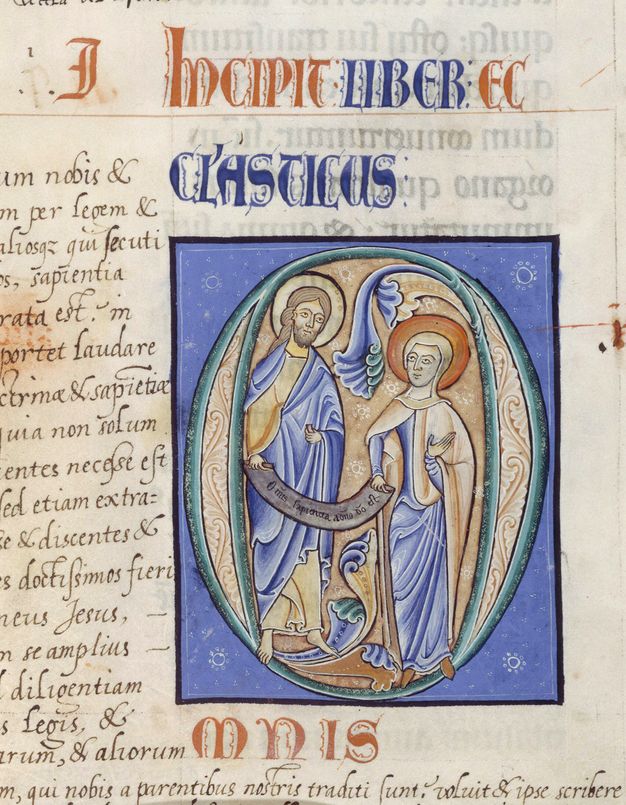 I INCIPIT LIBER: EC
CLˊASTICUS:
um nobis &
m per legem &
aliosqz qui secuti
os, sapientia
rata est: in
portet laudare
ctrinæ & sapietiæ
quia non solum
entes necesse est
sed etiam extra:
se & discentes &
es doctissimos fieri
meus Jesus, —
m se amplius —
diligentiam
s legis, &
arum, & aliorum
O mis sapientia adño do est
MNIS
m, qui nobis a parentibus nostris traditi sunt: voluit & ipse scribere